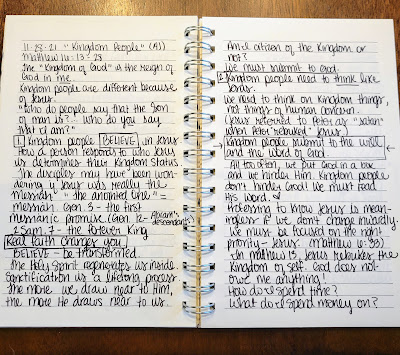 11-28-21 "Kingdom People" (AJ)
Matthew 16:13-28
The "Kingdom of God" is the reign of
God in me.
Kingdom people are different because
of Jesus.
"Who do people say that the Son
of man is? ... Who do you say
that I am?"
1. Kingdom people BELIEVE in Jesus
How a person responds to who Jesus
is determines their Kingdom status.
The disciples may have been won-
dering if Jesus was really the
Messiah. "the anointed one" =
Messiah. Gen. 3 - the first
messianic promise. (Gen. 12 - Abram's descendants)
2 Sam. 7 - the forever King
Real faith changes you.
BELIEVE - be transformed
The Holy Spirit regenerates us inside.
Sanctification is a lifelong process.
The more we draw near to Him,
the more He draws near to us.
Am I a citizen of the Kingdom or
not?
We must submit to God.
2. Kingdom people need to think like
Jesus.
We need to think on Kingdom things,
not things of human concern.
(Jesus referred to Peter as "satan"
when Peter "rebuked" Jesus)
Kingdom people submit to the will
and the word of God.
All too often, we put God in a box
and we hinder Him. Kingdom people
don't hinder God! We must read
His word. ♥
Professing to know Jesus is mean-
ingless if we don't change inwardly.
We must be focused on the right
priority - Jesus. (Matthew 6:33)
In Matthew 13, Jesus rebukes the
Kingdom of self. God does not
owe me anything!
How do I spend time?
What do I spend money on?